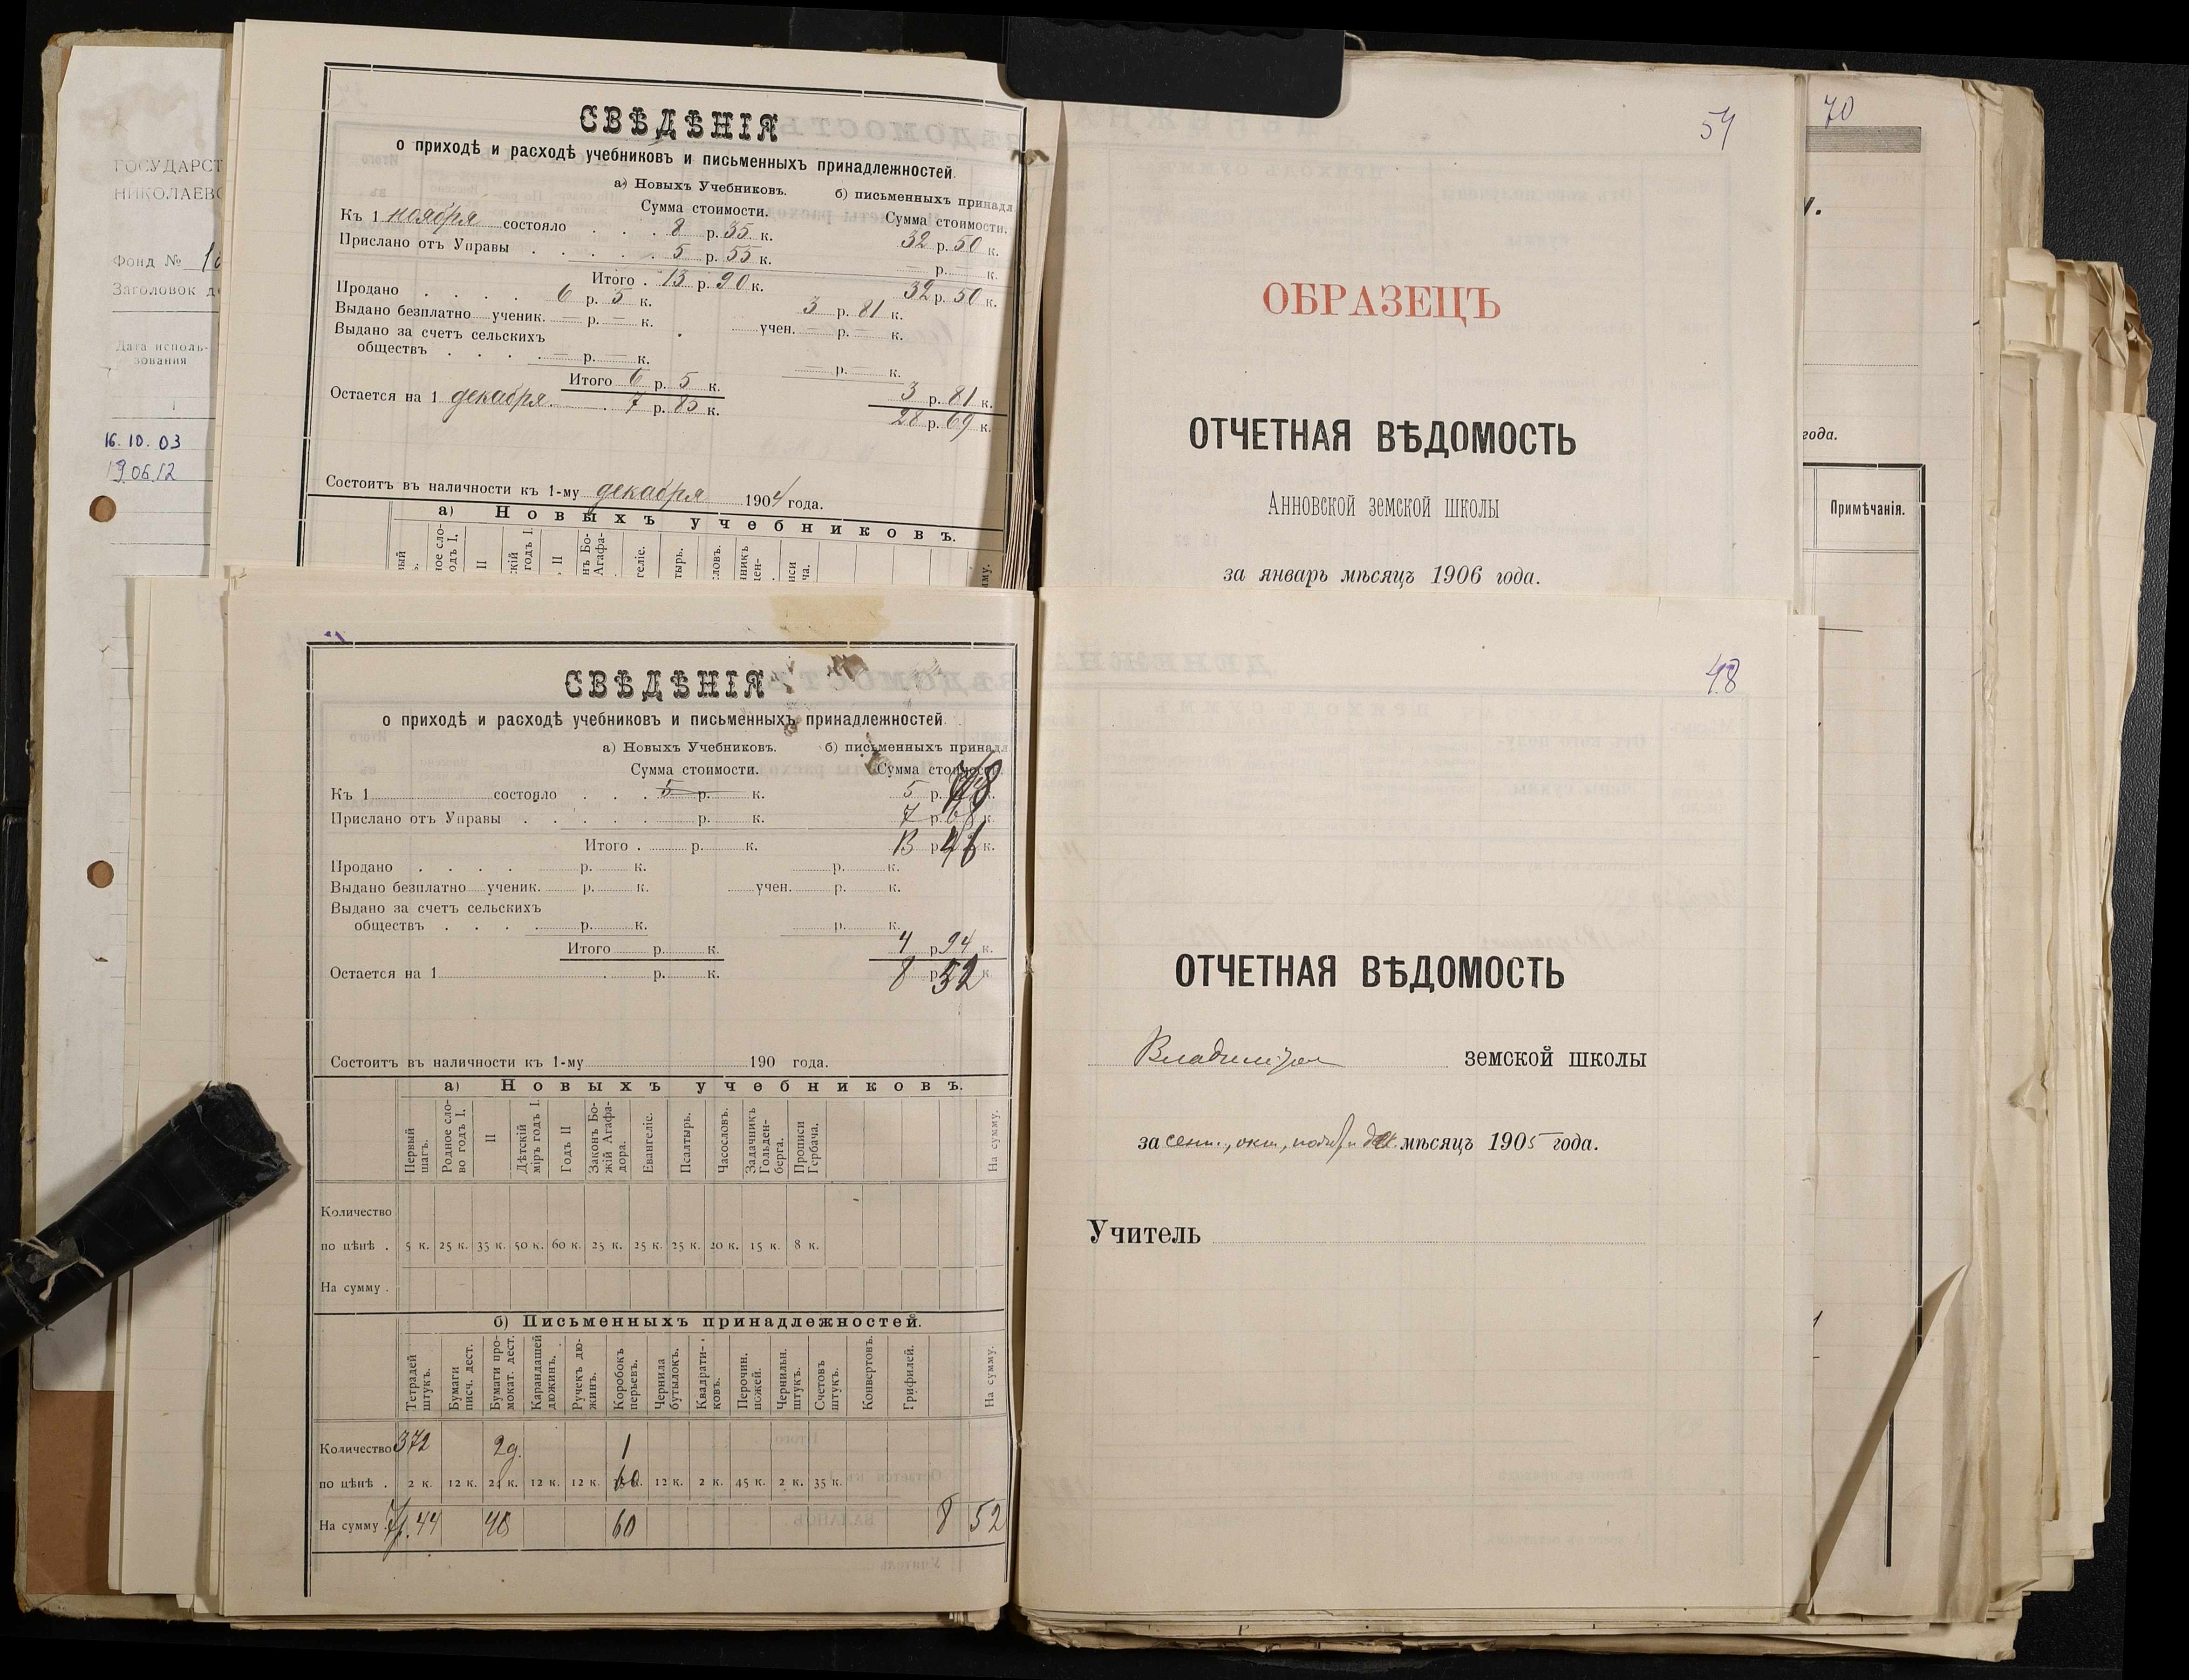 ГОСУДАРСТ
НИКОЛАЕВС
Фонд №
Заголовок д
Дата исполь-
зования
16.10.03
19.06.12
СВѢДѢНІЯ
о приходѣ и расходѣ учебниковъ и письменныхъ принадлежностей.
а) Новыхъ Учебниковъ. б) письменныхъ принадл
Сумма стоимости. Сумма стоимости.
Къ 1 ноября состояло . . . 8 р. 35 к. 32 р. 50 к.
Прислано отъ Управы . . . . . 5 р. 55 к. — р. — к.
Итого . 13 р. 90 к. 32 р. 50 к.
Продано . . . . 6 р. 5 к. 3 р. 81 к.
Выдано безплатно ученик. — р. — к. учен. — р. — к.
Выдано за счетъ сельскихъ
обществъ . . . . — р. — к. — р. — к.
Итого 6 р. 5 к. 3 р. 81 к.
Остается на 1 декабря 7 р. 85 к. 28 р. 69 к.
Состоитъ въ наличности къ 1-му декабря 1904 года.
а) Новыхъ учебниковъ.
54
ОБРАЗЕЦЪ
ОТЧЕТНАЯ ВѢДОМОСТЬ
Анновской земской школы
за январь мѣсяцъ 1906 года.
70
года.
Примѣчанія.
СВѢДѢНІЯ
о приходѣ и расходѣ учебниковъ и письменныхъ принадлежностей.
а) Новыхъ Учебниковъ. б) письменныхъ принадл
Сумма стоимости. Сумма стоимости.
Къ 1 состояло . . . 5 р. к. 5 р. к.
Прислано отъ Управы . . . . . р. к. 7 р. 68 к.
Итого . р. к. 13 р. 46 к.
Продано . . . . р. к. р. к.
Выдано безплатно ученик. р. к. учен. р. к.
Выдано за счетъ сельскихъ
обществъ . . . . р. к. р. к.
Итого р. к. 4 р. 94 к.
Остается на 1 р. к. 8 р. 52 к.
Состоитъ въ наличности къ 1-му 190 года.
а) Новыхъ учебниковъ.
Первый шагъ. Родное слово годъ I. II Дѣтскій міръ годъ I. Годъ II Законъ Божій Агафадора. Евангеліе. Псалтырь. Часословъ. Задачникъ Гольденберга. Прописи Гербача. На сумму.
Количество
по цѣнѣ . 5 к. 25 к. 35 к. 50 к. 60 к. 25 к. 25 к. 25 к. 20 к. 15 к. 8 к.
На сумму .
б) Письменныхъ принадлежностей.
Тетрадей штукъ. Бумаги писч. дест. Бумаги промокат. дест. Карандашей дюжинъ. Ручекъ дюжинъ. Коробокъ перьевъ. Чернила бутылокъ. Квадратиковъ. Перочин. ножей. Чернильн. штукъ. Счетовъ штукъ. Конвертовъ. Грифилей. На сумму.
Количество 372 2д. 1
по цѣнѣ . 2 к. 12 к. 24 к. 12 к. 12 к. 60 12 к. 2 к. 45 к. 2 к. 35 к.
На сумму . 7р.44 48 60 8 52
48
ОТЧЕТНАЯ ВѢДОМОСТЬ
земской школы
за сент., окт., нояб. и дек. мѣсяцъ 1905 года.
Учитель